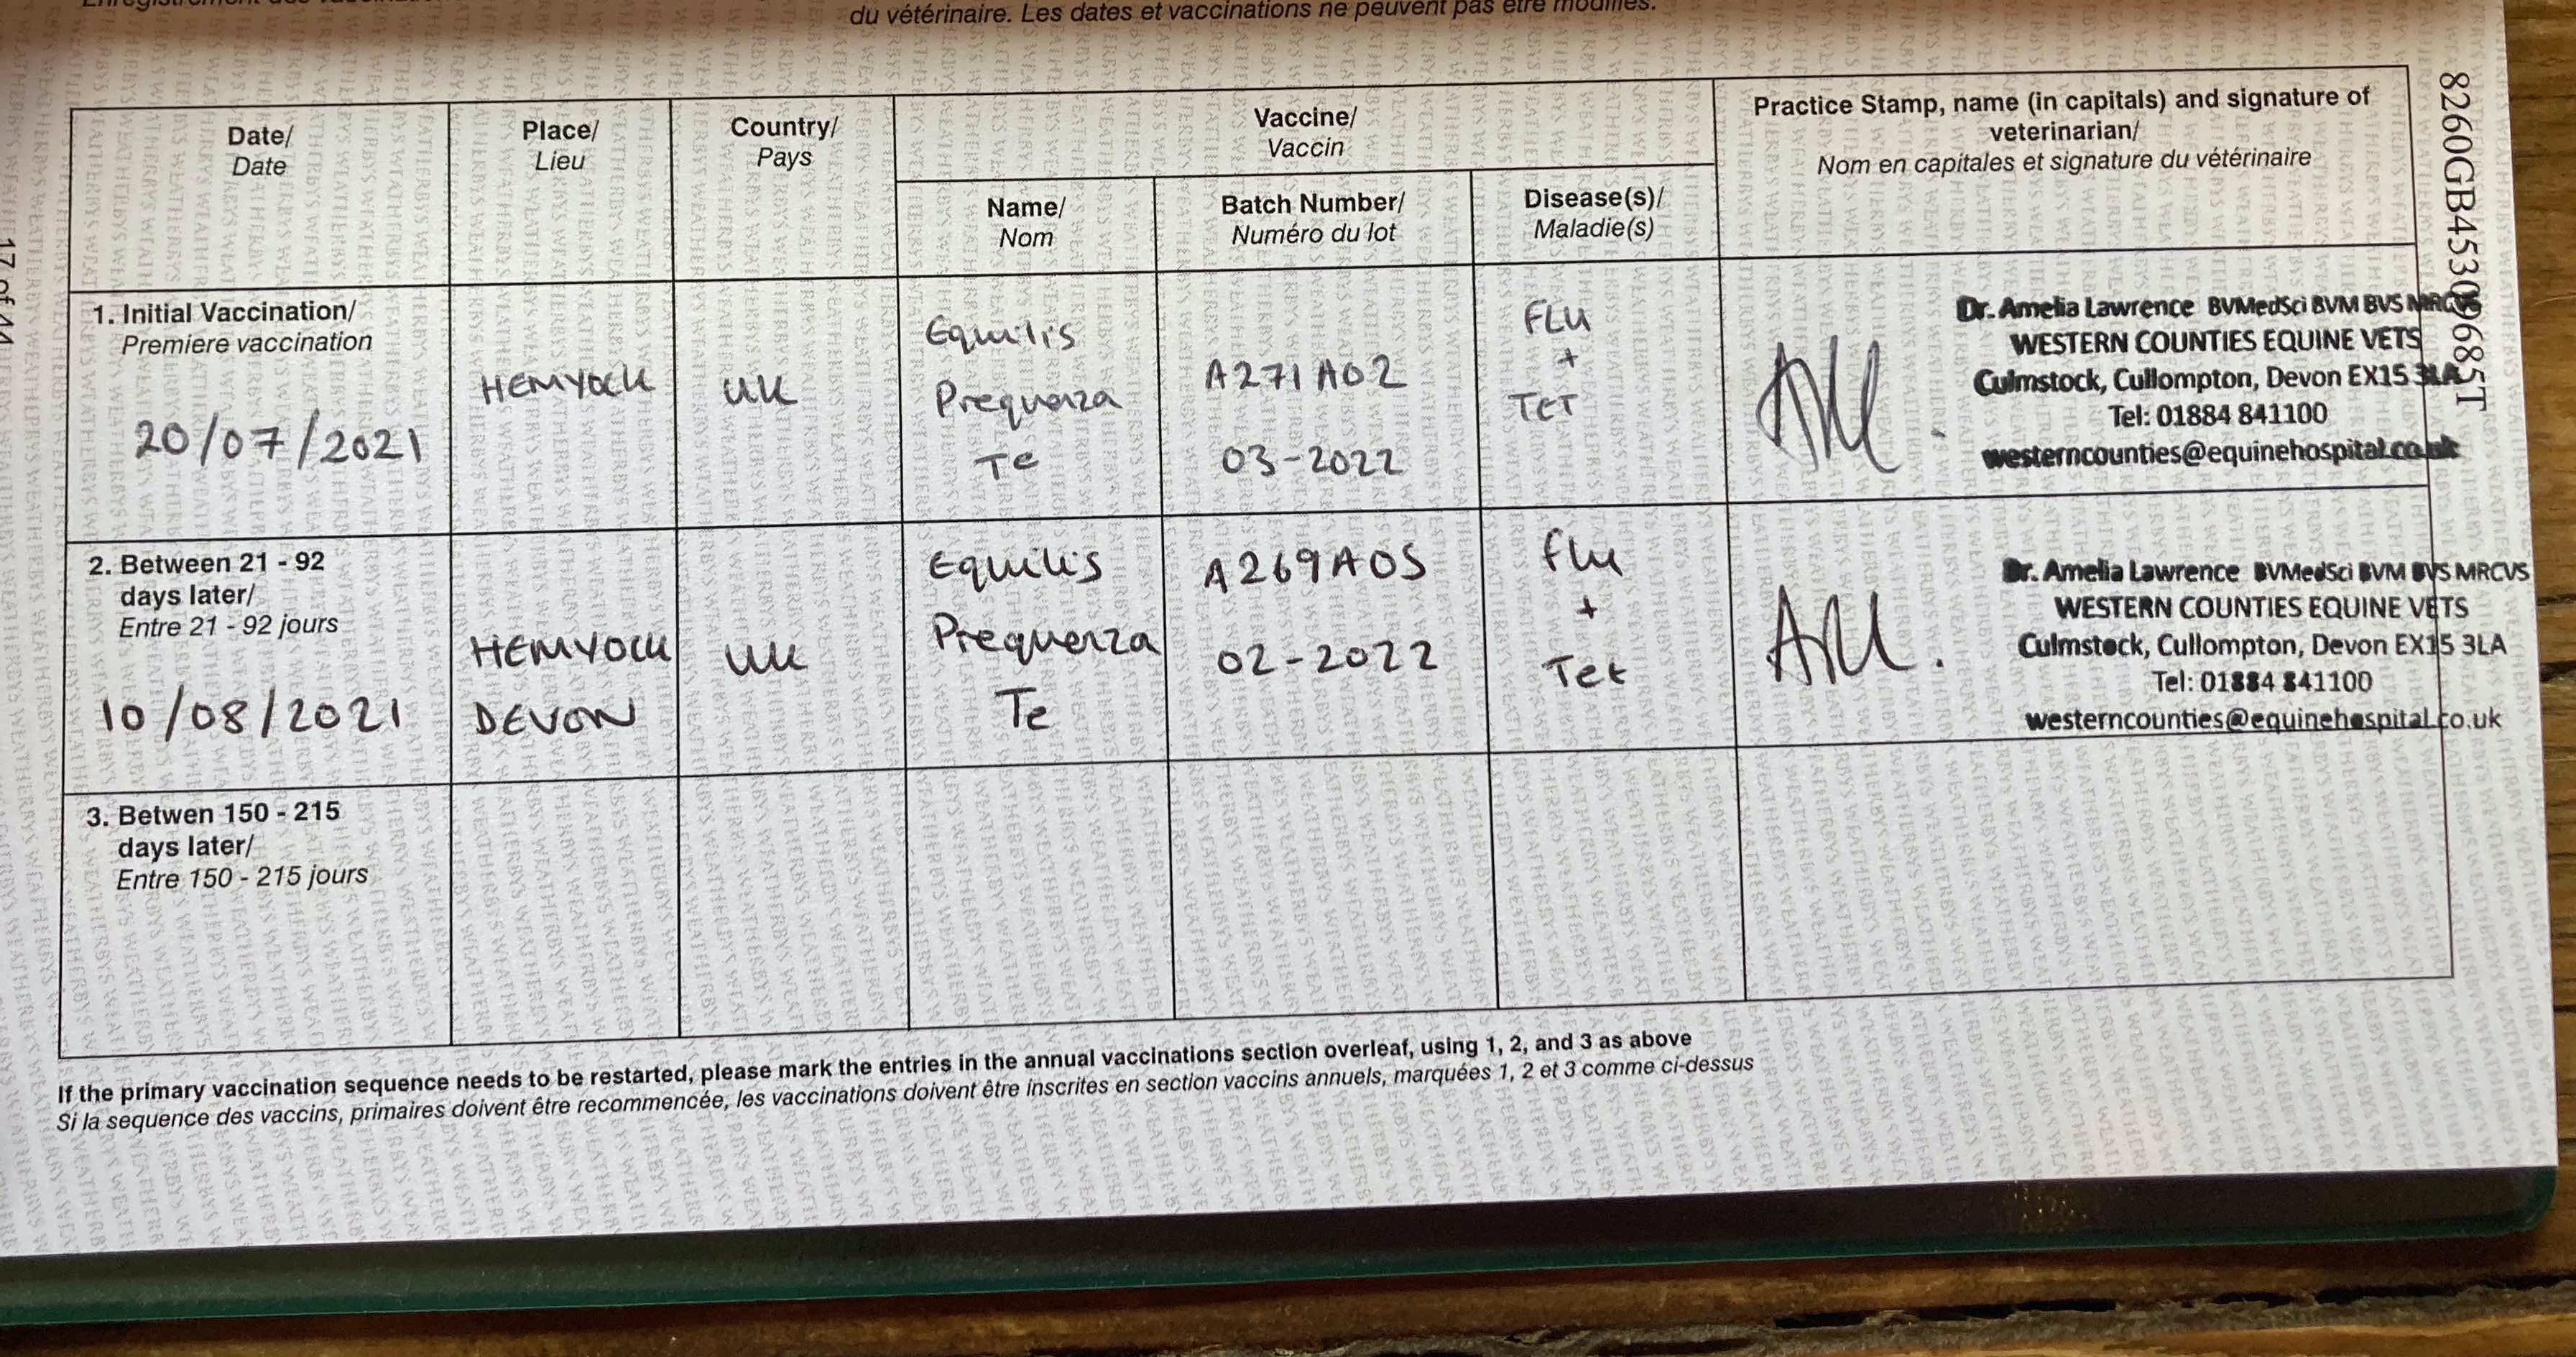 du vétérinaire. Les dates et vaccinations ne peuvent pas être modifiés.
Date/
Date
Place/
Lieu
Country/
Pays
Vaccine/
Vaccin
Name/
Nom
Batch Number/
Numéro du lot
Disease(s)/
Maladie(s)
Practice Stamp, name (in capitals) and signature of
veterinarian/
Nom en capitales et signature du vétérinaire
1. Initial Vaccination/
Premiere vaccination
20/07/2021
HEMYOCK
UK
Equilis
Prequenza
Te
A271A02
03-2022
FLU
+
TET
Dr. Amelia Lawrence BVMedSci BVM BVS MRCVS
WESTERN COUNTIES EQUINE VETS
Culmstock, Cullompton, Devon EX15 3LA
Tel: 01884 841100
westerncounties@equinehospital.co.uk
2. Between 21 - 92
days later/
Entre 21 - 92 jours
10/08/2021
HEMYOCK
DEVON
UK
Equilis
Prequenza
Te
A269A05
02-2022
flu
+
Tet
Dr. Amelia Lawrence BVMedSci BVM BVS MRCVS
WESTERN COUNTIES EQUINE VETS
Culmstock, Cullompton, Devon EX15 3LA
Tel: 01884 841100
westerncounties@equinehospital.co.uk
3. Betwen 150 - 215
days later/
Entre 150 - 215 jours
If the primary vaccination sequence needs to be restarted, please mark the entries in the annual vaccinations section overleaf, using 1, 2, and 3 as above
Si la sequence des vaccins, primaires doivent être recommencée, les vaccinations doivent être inscrites en section vaccins annuels, marquées 1, 2 et 3 comme ci-dessus
17 of 44